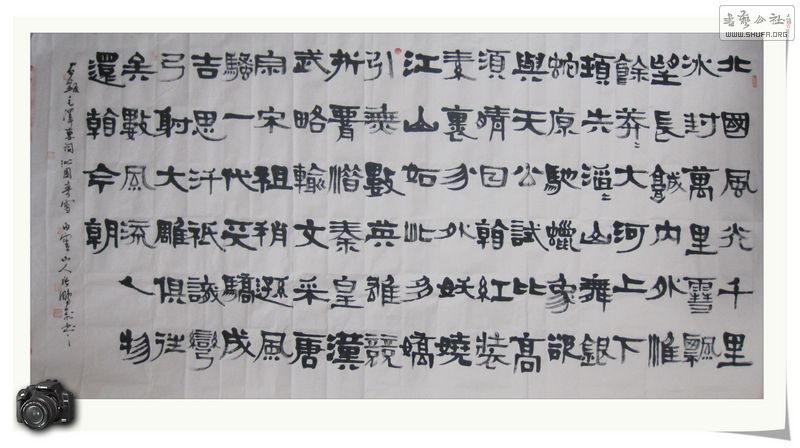 北國風光千里
冰封萬里雪飄
望長城內外惟
餘莽〻大河上下
頓失滔〻山舞銀
蛇原馳蠟象欲
與天公試比高
須晴日看紅裝
素裹分外妖嬈
江山如此多嬌
引無數英雄競
折腰惜秦皇漢
武略輸文采唐
宗宋祖稍遜風
騷一代天驕成
吉思汗祇識彎
弓射大雕俱往
矣數風流人物
還看今朝
右錄毛澤東詞沁園春雪 白雲山人
書藝公社
www.SHUFA.ORG